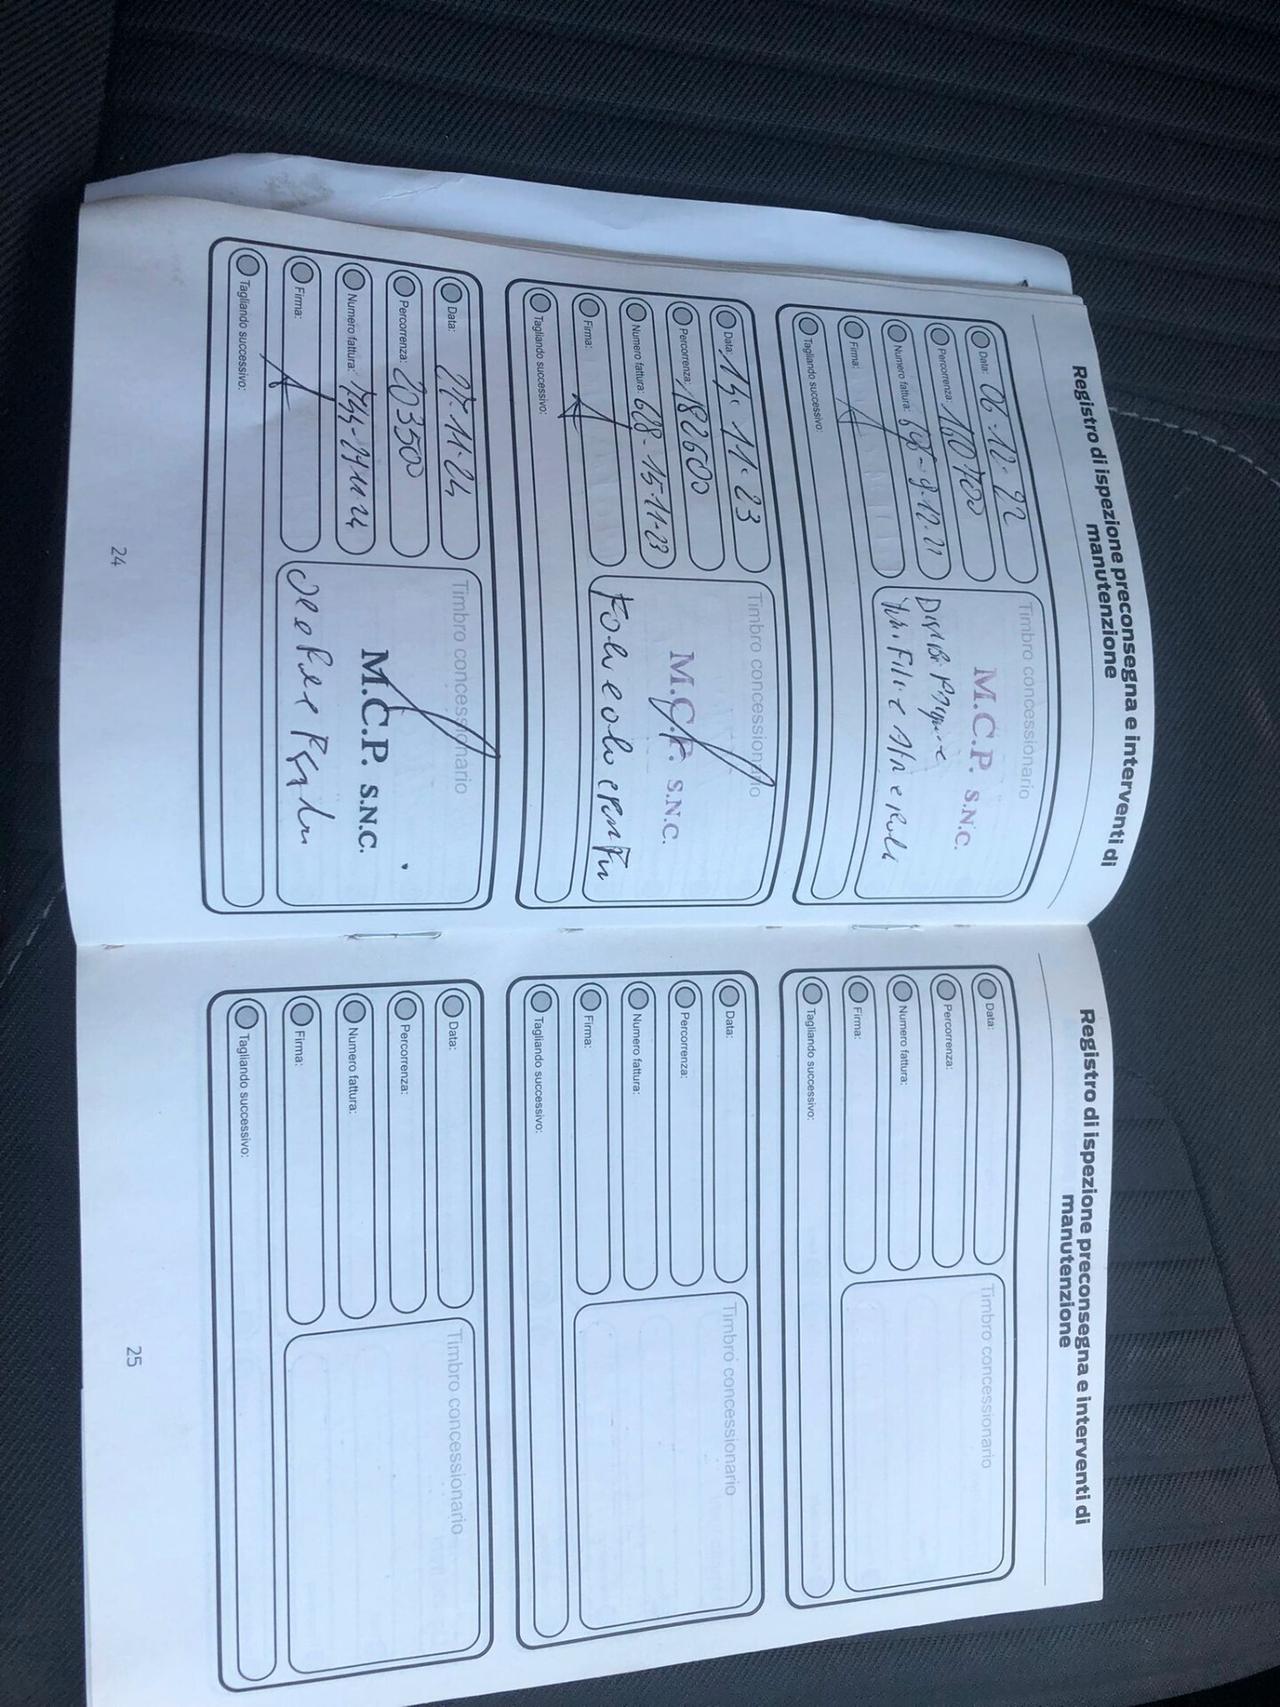 Registro di ispezione preconsegna e interventi di
manutenzione
Data: 06-12-22
Percorrenza: 160700
Numero fattura:
Firma:
Tagliando successivo:
Timbro concessionario
M.C.P. S.N.C.
Data: 14.11.23
Percorrenza: 182600
Numero fattura: 668-15-11-23
Firma:
Tagliando successivo:
Timbro concessionario
M.C.P. S.N.C.
Data: 27.11.24
Percorrenza: 203500
Numero fattura:
Firma:
Tagliando successivo:
Timbro concessionario
M.C.P. S.N.C.
24
Registro di ispezione preconsegna e interventi di
manutenzione
Data:
Percorrenza:
Numero fattura:
Firma:
Tagliando successivo:
Timbro concessionario
Data:
Percorrenza:
Numero fattura:
Firma:
Tagliando successivo:
Timbro concessionario
Data:
Percorrenza:
Numero fattura:
Firma:
Tagliando successivo:
Timbro concessionario
25